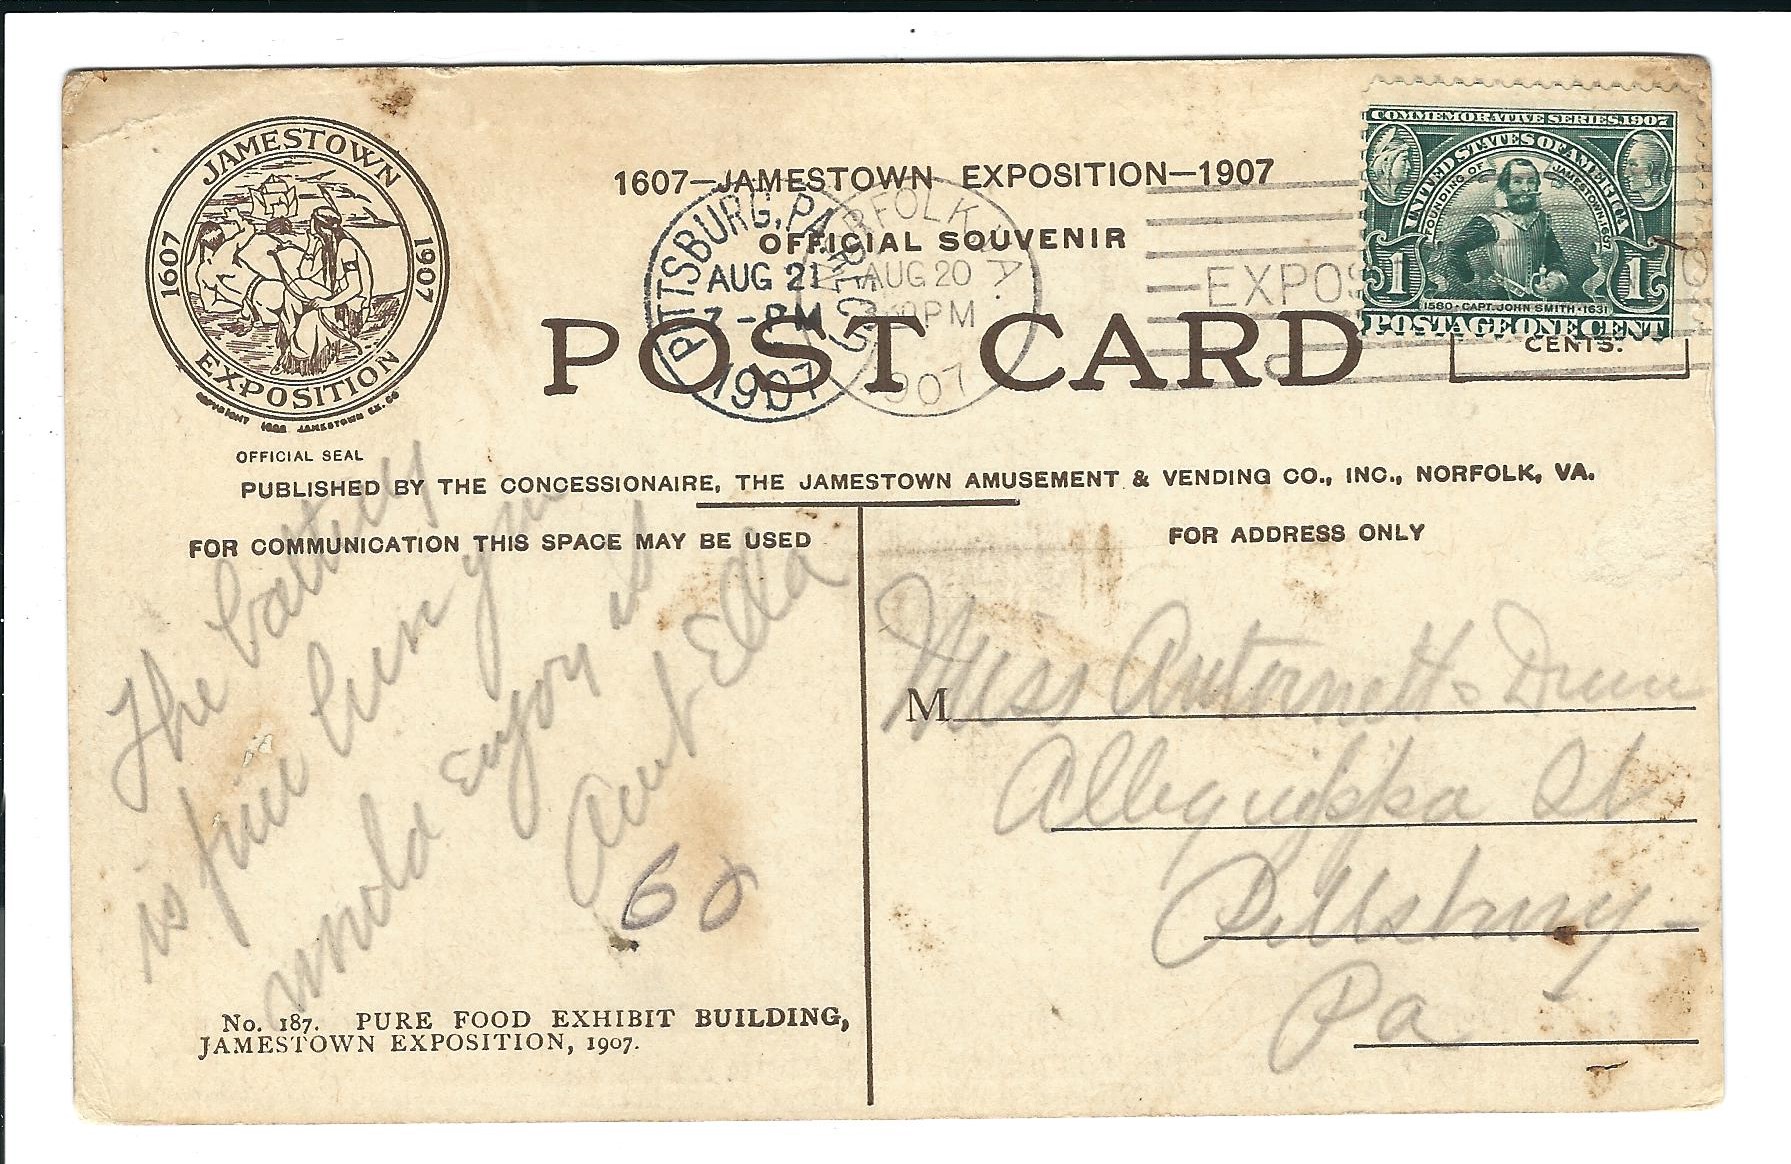 JAMESTOWN
1607
1907
EXPOSITION
COPYRIGHT JAMESTOWN EX. CO
OFFICIAL SEAL
1607—JAMESTOWN EXPOSITION—1907
OFFICIAL SOUVENIR
POST CARD
PITTSBURG, PA. REC'D
AUG 21
7-PM
1907
NORFOLK VA.
AUG 20
PM
1907
EXPOS
COMMEMORATIVE SERIES 1907
UNITED STATES OF AMERICA
FOUNDING OF JAMESTOWN 1607
1 1
1580·CAPT. JOHN SMITH·1631
POSTAGE ONE CENT
CENTS.
PUBLISHED BY THE CONCESSIONAIRE, THE JAMESTOWN AMUSEMENT & VENDING CO., INC., NORFOLK, VA.
FOR COMMUNICATION THIS SPACE MAY BE USED
FOR ADDRESS ONLY
The bathing
is fine here you
would enjoy it
Aunt Ella
60
M
Miss Anternett Dunn
Allequippa St
Pittsburg
Pa
No. 187. PURE FOOD EXHIBIT BUILDING,
JAMESTOWN EXPOSITION, 1907.